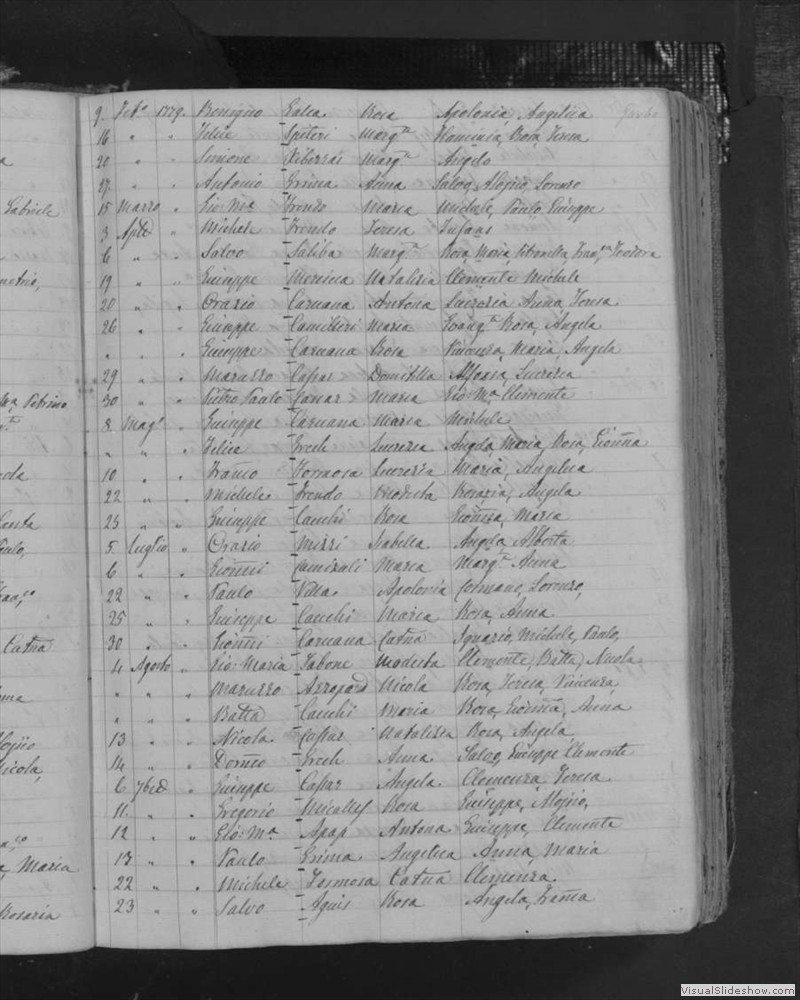 9. Feb.º 1779. Benigno Galea. Rosa Apolonia Angelica
16 " " Felice Spiteri Marg.ta Flaminia, Rosa, Teresa
20 " " Simone Xiberras Marg.ta Angelo
27. " " Antonio Grima Anna Salv.e, Aloysio, Lorenzo
15 Marzo " Gio: M.a Frendo Maria Michele, Paulo, Giuseppe
3 Aple " Michele Frendo Teresa
6 " " Salvo Saliba Marg.ta Rosa, Maria, Petronilla, Fran.ca, Teodora
19 " " Giuseppe Natalizia Clemente Michele
20 " " Orazio Caruana Antona Lucrezia Anna, Teresa
26 " " Giuseppe Camilleri Maria Evang.ta Rosa, Angela
" " " Giuseppe Caruana Rosa Vincenza, Maria, Angela
29 " " Maruzzo Cassar Domitilla Alfonsa, Lucrezia
30 " " Pietro Paulo Maria Gio: M.a Clemente
8. Mag.º " Giuseppe Caruana Maria Michele
" " " Felice Grech Lucrezia Angela, Maria, Rosa, Gioñna
10 " " Franco Formosa Lucrezia Maria, Angelica
22 " " Michele Frendo Modesta Rosaria, Angela
25 " " Giuseppe Cauchi Rosa Maria
5. Luglio " Orazio Mizzi Isabella. Angela, Alberta
6 " " Gioñni Maria Marg.ta Anna
22 " " Paulo Villa. Apolonia Cosmano, Lorenzo,
25 " " Giuseppe Cauchi Maria Rosa, Anna
30 " " Gioñni Caruana Catña Ignazio, Michele, Paulo,
4 Agosto " Gio: Maria Tabone Modesta Clemente, Batta, Nicola
" " " Maruzzo Azzopard Nicola Rosa, Teresa, Vincenza,
" " " Batta Cauchi Maria Rosa, Gioñna, Anna
13 " " Nicola Cassar Natalizia Rosa, Angela,
14 " " Domco Grech Anna Salvo, Giuseppe Clemente
6 7bre " Giuseppe Cassar Angela Clemenza, Teresa
11. " " Gregorio Micallef Rosa Giuseppe, Aloysio,
12 " " Gio: M.a Apap Antona Giuseppe, Clemente
13 " " Paulo Grima Angelica Anna, Maria
22 " " Michele Formosa Catña Clemenza.
23 " " Salvo Agius Rosa Angela, Frañca
Gabriele
M.a Petrino
Paulo,
Catña
Aloysio
Nicola,
Maria
Rosaria
VisualSlideshow.com